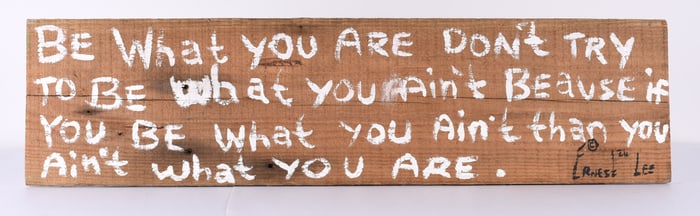 BE What YOU ARE DON't TRY
TO BE what YOU Ain't BEAUSE if
YOU BE What YOU Ain't than you
Ain't what YOU ARE.
© ERNEST LEE